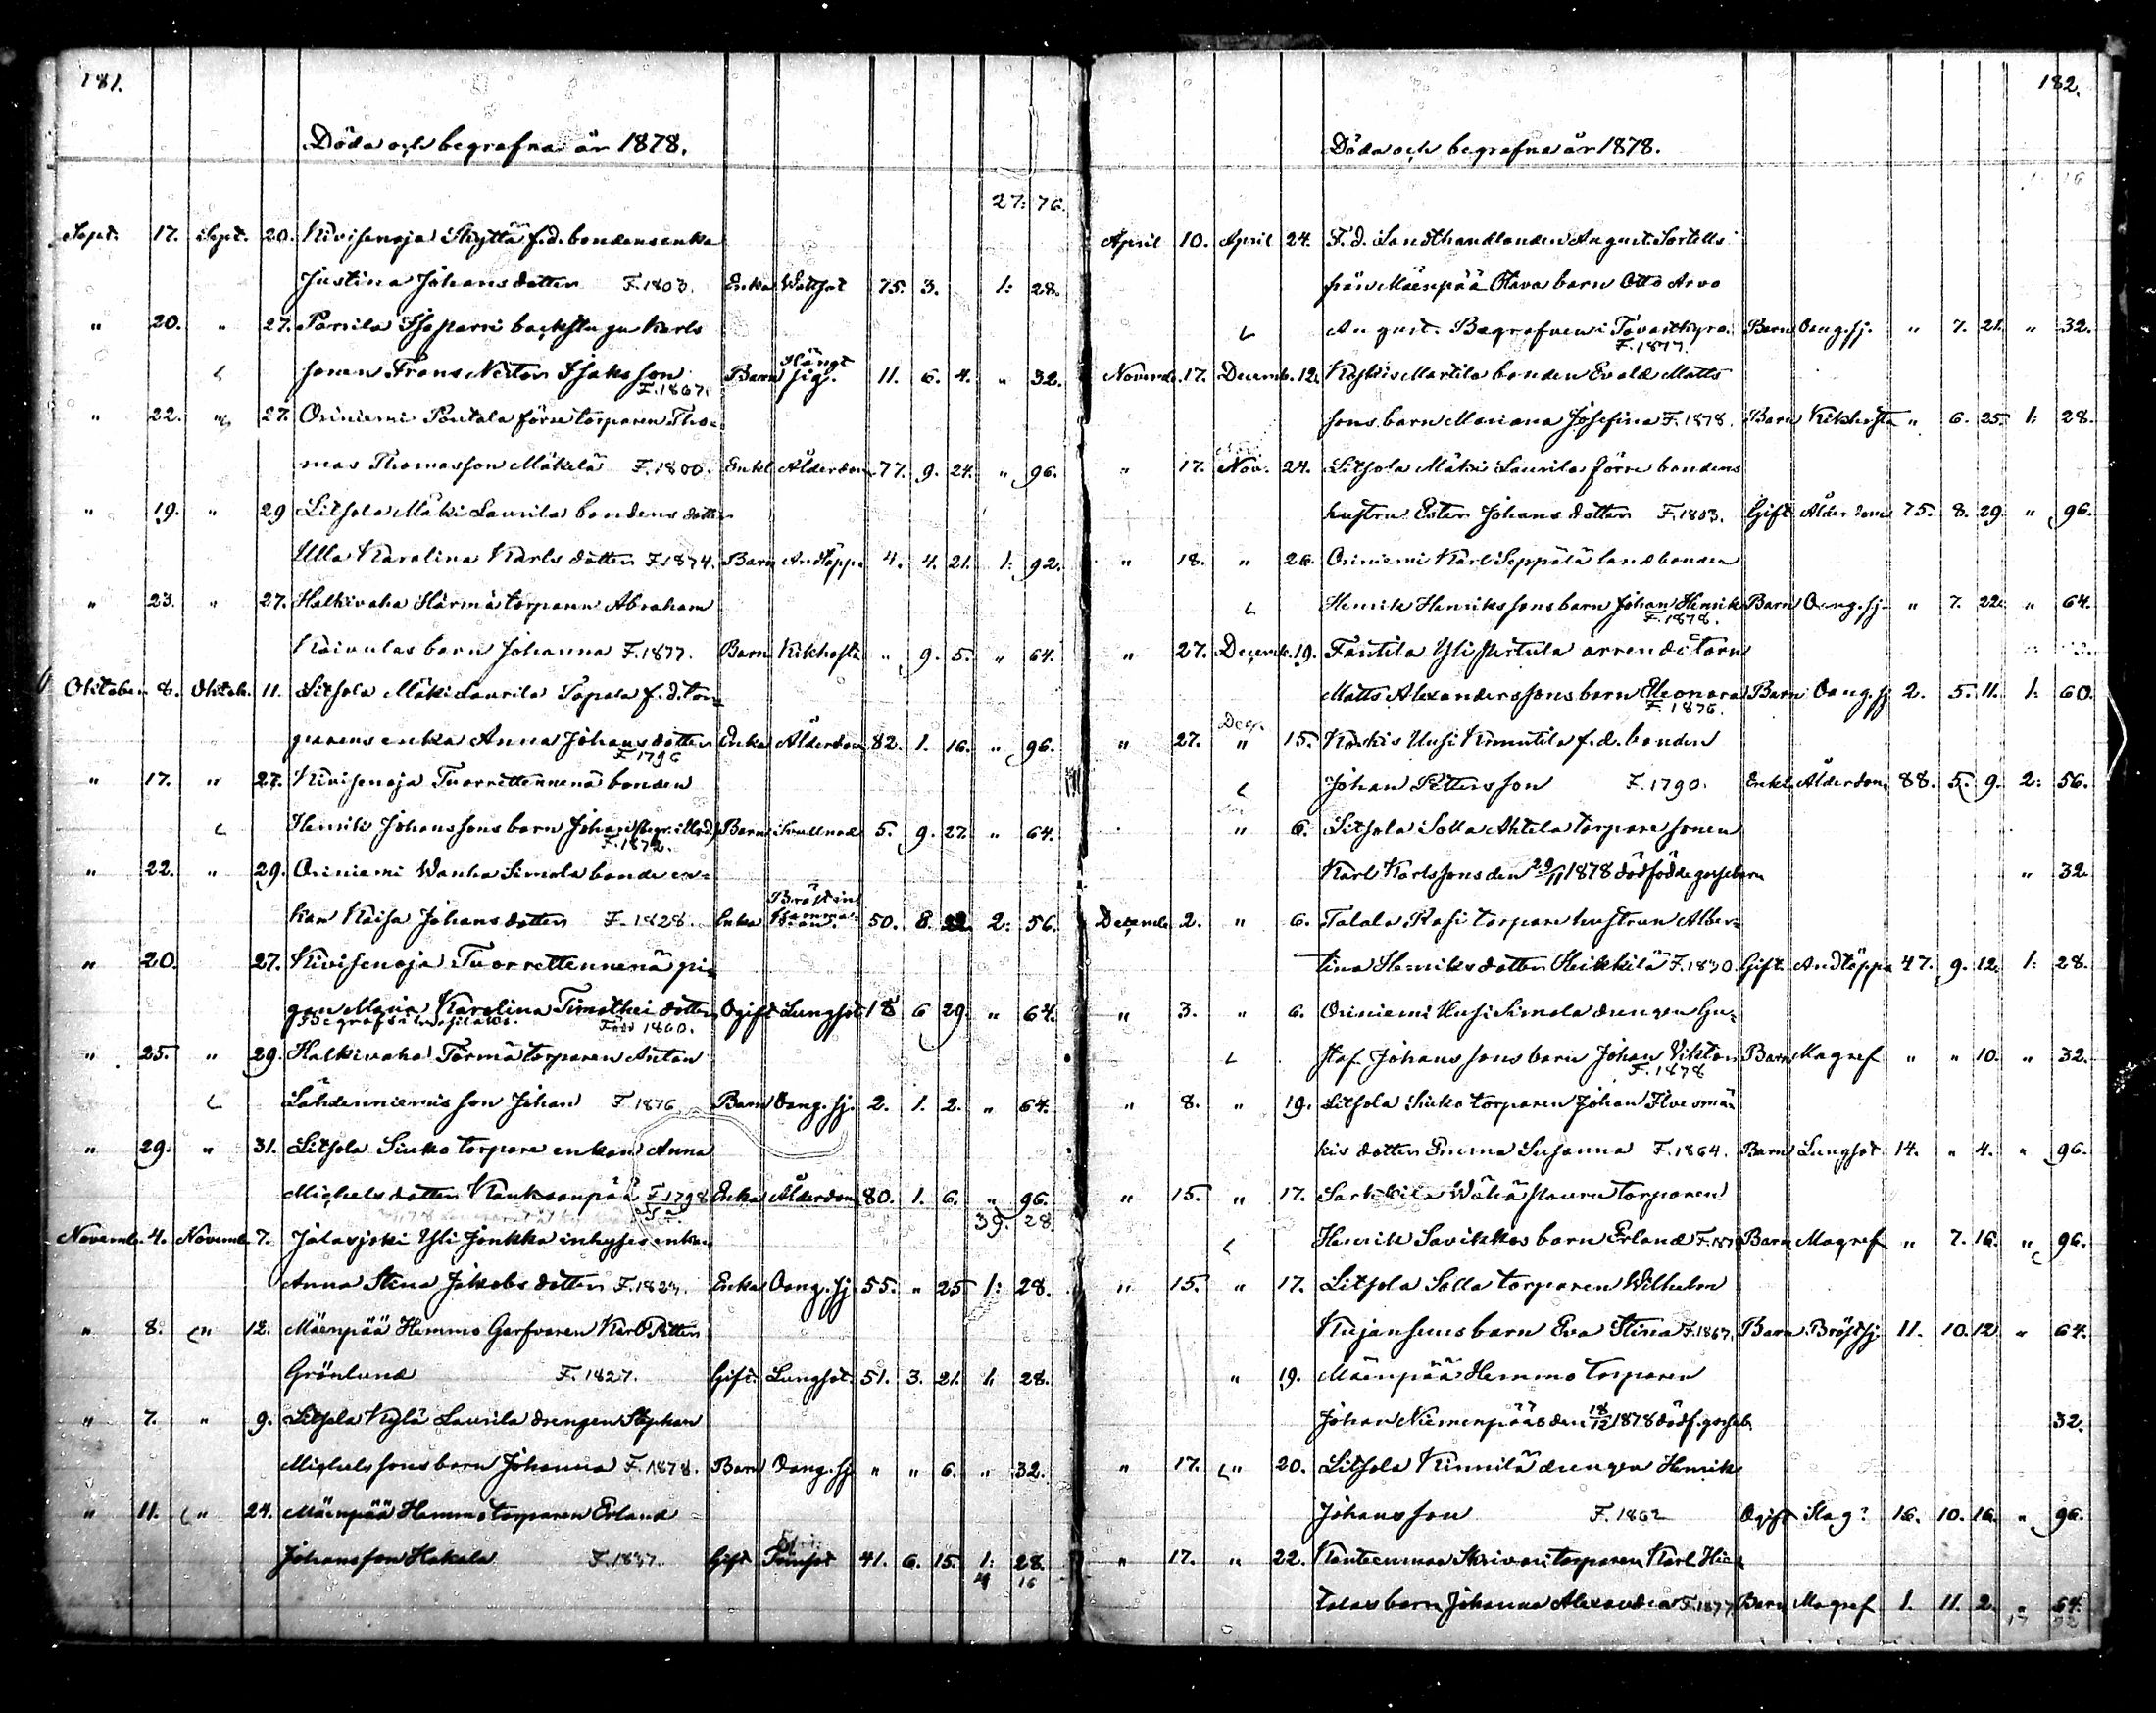 181.
Döda och begrafna år 1878.
27: 76.
Sept. 17. Sept. 20. Kivisenoja Skyttä f.d. bondens enka
Justina Johansdotter F. 1803. Enka Wattsot 75. 3. 1: 28.
" 20. " 27. Isotarri backstugu Karls
sonen Frans Nestor Isaksson F. 1867. Barn Slängt sig. 11. 6. 4. " 32.
" 22. " 27. Oriniemi Pentala förre torparen Tho=
mas Thomasson Mäkelä F. 1800. Enkl Ålderdom 77. 9. 24. " 96.
" 19. " 29 Litsola Mäki Laurila bondens dotter
Ulla Karolina Karlsdotter F. 1874. Barn Andtäppa 4. 4. 21. 1: 92.
" 23. " 27. Halkivaha Härmä torparen Abraham
Koivulas barn Johanna F. 1877. Barn Kikhosta " 9. 5. " 64.
Oktober 8. Oktob. 11. Litsola Mäki Laurila Papala f.d. tor=
parens enka Anna Johansdotter F. 1796 Enka Ålderdom 82. 1. 16. " 96.
" 17. " 27. Kivisenoja Tuorrettennenä bonden
Henrik Johanssons barn Johan F. 1872. Barn Svullnad 5. 9. 27. " 64.
" 22. " 29. Oriniemi Wanha Simola bonde en=
kan Kaisa Johansdotter F. 1828. Enka Bröstinflamma=tion. 50. 8. 22. 2: 56.
" 20. 27. Kivisenoja Tuorrettennenä pi=
gan Maria Karolina Timothei dotter Född 1860. Ogift Lungsot 18 6 29. " 64.
" 25. " 29. Halkivaha Törmä torparen Anton
Lähdenniemis son Johan F. 1876 Barn Oang. sj. 2. 1. 2. " 64.
" 29. " 31. Litsola Siuko torpare enkan Anna
Michelsdotter Kanksanpää F. 1798 Enka Ålderdom 80. 1. 6. " 96.
39. 28.
Novemb. 4. Novemb. 7. Jalasjoki Yli Jonkka inhyses enkan
Anna Stina Jakobsdotter F. 1823. Enka Oang. sj 55. " 25 1: 28.
" 8. " 12. Mäenpää Hemmo Garfvaren Karl Petter
Grönlund F. 1827. Gift Lungsot. 51. 3. 21. 1. 28.
" 7. " 9. Litsola Kylä Laurila drengen Stephan
Michelssons barn Johanna F. 1878. Barn Oang. sj " " 6. " 32.
" 11. " 24. Mäenpää Hemmo torparen Erland
Johansson Hakala F. 1837. Gift 41. 6. 15. 1: 28.
4 16
182.
Döda och begrafna år 1878.
April 10. April 24. F.d. Landthandlanden August Sortells
från Mäenpää Olava barn Otto Arvo
August. Begrafven i Tavastkyro. F. 1877. Barn Oang. sj. " 7. 21. " 32.
Novemb. 17. Decemb. 12. Kojkis Martila bonden Evald Matts
sons barn Mariana Josefina F. 1878. Barn Kikhosta " 6. 25. 1: 28.
" 17. Nov. 24. Litsola Mäki Laurila förre bondens
hustru Ester Johansdotter F. 1803. Gift Ålderdom 75. 8. 29. " 96.
" 18. " 26. Oriniemi Karl Seppälä landbonden
Henrik Henrikssons barn Johan Henrik F. 1878. Barn Oang. sj. " 7. 22. " 64.
" 27. Decemb. 19. Fantila Yli Pertula arrendatorn
Matts Alexanderssons barn Eleonora F. 1876. Barn Oang. sj 2. 5. 11. 1: 60.
" 27. Dec. " 15. Koskis Uusi Kimmtila f.d. bonden
Johan Pettersson F. 1790. Enkl Ålderdom 88. 5. 9. 2: 56.
" 6. Litsola Solla Ahtela torpare sonen
Karl Karlssons den 29/11 1878 dödfödde gossebarn " 32.
Decemb. 2. " 6. Talala Rasi torpare hustrun Alber=
tina Henriksdotter Heikkilä F. 1830. Gift Andtäppa 47. 9. 12. 1: 28.
" 3. " 6. Oriniemi Uusi Simola drengen Gu=
staf Johanssons barn Johan Viktor F. 1878 Barn Magref " " 10. " 32.
" 8. " 19. Litsola Siuko torparen Johan Ilvesmä=
kis dotter Emma Susanna F. 1864. Barn Lungsot 14. " 4. " 96.
" 15. " 17. Sarkkila Wähä Mauru torparen
Henrik Savikkos barn Erland Barn Magref " 7. 16. " 96.
" 15. " 17. Litsola Solla torparen Wilhelm
Kujansuus barn Eva Stina F. 1867. Barn Bröstsj. 11. 10. 12 " 64.
" 19. Mäenpää Hemmo torparen
Johan Niemenpääs den 18/12 1878 dödf. gosseb. 32.
" 17. " 20. Litsola Kinnilä drengen Henrik
Johansson F. 1862 Ogift Slag? 16. 10. 16. " 96.
" 17. " 22. Kanteenmaa Skrivari torparen Karl Hie=
talas barn Johanna Alexandra F. 1877 Barn Magref 1. 11. 2. " 64.